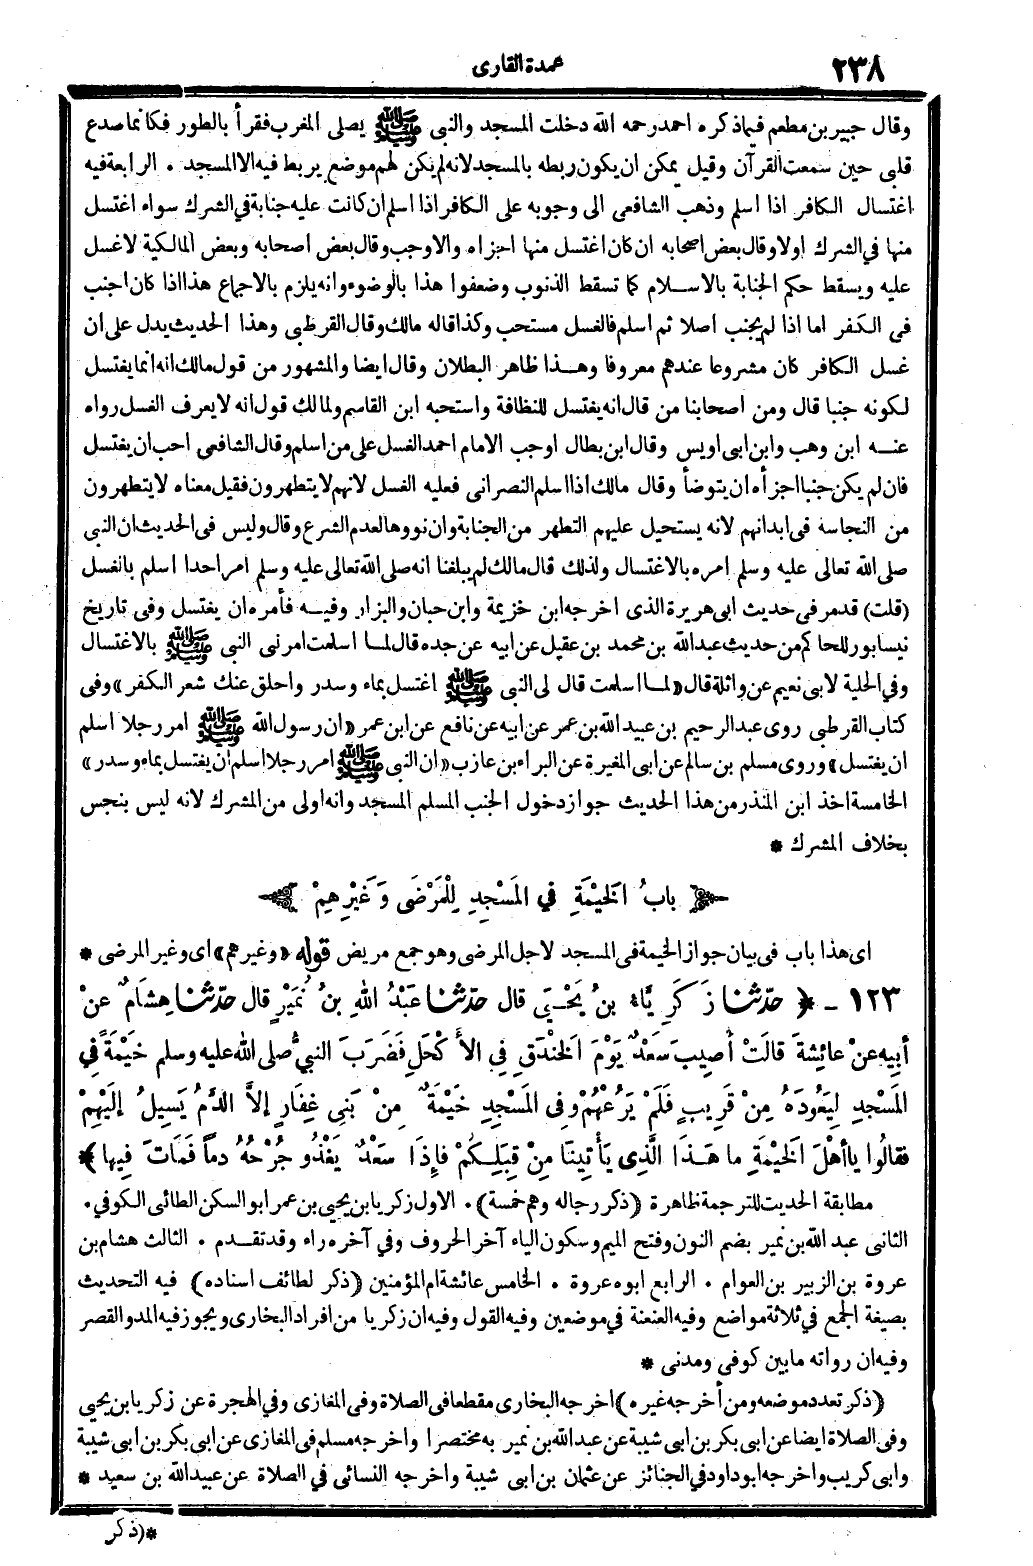 ٢٣٨
عمدة القارى
وقال جبير بن مطعم فيما ذكره احمد رحمه الله دخلت المسجد والنبى ﷺ يصلى المغرب فقرأ بالطور فكأنما صدع
قلبى حين سمعت القرآن وقيل يمكن ان يكون ربطه بالمسجد لانه لم يكن لهم موضع يربط فيه الا المسجد . الرابعة فيه
اغتسال الكافر اذا اسلم وذهب الشافعى الى وجوبه على الكافر اذا اسلم ان كانت عليه جنابة في الشرك سواء اغتسل
منها في الشرك اولا وقال بعض اصحابه ان كان اغتسل منها اجزاه والاوجب وقال بعض اصحابه وبعض المالكية لاغسل
عليه ويسقط حكم الجنابة بالاسلام كما تسقط الذنوب وضعفوا هذا بالوضوء وانه يلزم بالاجماع هذا اذا كان اجنب
فى الكفر اما اذا لم يجنب اصلا ثم اسلم فالغسل مستحب وكذا قاله مالك وقال القرطبى وهذا الحديث يدل على ان
غسل الكافر كان مشروعا عندهم معروفا وهذا ظاهر البطلان وقال ايضا والمشهور من قول مالك انه انما يغتسل
لكونه جنبا قال ومن اصحابنا من قال انه يغتسل للنظافة واستحبه ابن القاسم ولمالك قول انه لا يعرف الغسل رواه
عنه ابن وهب وابن ابى اويس وقال ابن بطال اوجب الامام احمد الغسل على من اسلم وقال الشافعى احب ان يغتسل
فان لم يكن جنبا اجزأه ان يتوضأ وقال مالك اذا اسلم النصرانى فعليه الغسل لانهم لا يتطهرون فقيل معناه لا يتطهرون
من النجاسة فى ابدانهم لانه يستحيل عليهم التطهر من الجنابة وان نووها لعدم الشرع وقال وليس فى الحديث ان النبى
صلى الله تعالى عليه وسلم امره بالاغتسال ولذلك قال مالك لم يبلغنا انه صلى الله تعالى عليه وسلم امر احدا اسلم بالغسل
(قلت) قدمر فى حديث ابى هريرة الذى اخرجه ابن خزيمة وابن حبان والبزار وفيه فأمره ان يغتسل وفى تاريخ
نيسابور للحاكم من حديث عبدالله بن محمد بن عقيل عن ابيه عن جده قال لما اسلمت امرنى النبى ﷺ بالاغتسال
وفي الحلية لابى نعيم عن واثلة قال «لما اسلمت قال لى النبى ﷺ اغتسل بماء وسدر واحلق عنك شعر الكفر» وفى
كتاب القرطبى روى عبدالرحيم بن عبيدالله بن عمر عن ابيه عن نافع عن ابن عمر «ان رسول الله ﷺ امر رجلا اسلم
ان يغتسل» وروى مسلم بن سالم عن ابى المغيرة عن البراء بن عازب «ان النبى ﷺ امر رجلا اسلم أن يغتسل بماء وسدر»
الخامسة اخذ ابن المنذر من هذا الحديث جواز دخول الجنب المسلم المسجد وانه اولى من المشرك لانه ليس بنجس
بخلاف المشرك *
بابُ الخَيْمَةِ فِي المَسْجِدِ لِلْمَرْضَى وَغَيْرِهِمْ
اى هذا باب فى بيان جواز الخيمة فى المسجد لاجل المرضى وهو جمع مريض قوله «وغيرهم» اى وغير المرضى *
١٢٣ - ﴿ حدّثنا زَكَرِيَّاءُ بنُ يَحْيَى قال حدّثنا عَبْدُ اللهِ بنُ نُمَيْرٍ قال حدّثنا هِشَامٌ عنْ
أبِيهِ عنْ عائِشَةَ قالَتْ أُصِيبَ سَعْدٌ يَوْمَ الخَنْدَقِ فِي الأَكْحَلِ فَضَرَبَ النبيُّ صلى الله عليه وسلم خَيْمَةً فِي
المَسْجِدِ لِيَعُودَهُ مِنْ قَرِيبٍ فَلَمْ يَرُعْهُمْ وَفِى المَسْجِدِ خَيْمَةٌ مِنْ بَنِى غِفَارٍ إلاَّ الدَّمُ يَسِيلُ إلَيْهِمْ
فقالُوا ياأهْلَ الخَيْمَةِ ما هَذَا الَّذِى يَأْتِينَا مِنْ قِبَلِكُمْ فإذَا سَعْدٌ يَغْذُو جُرْحُهُ دماً فَمَاتَ فِيها ﴾ *
مطابقة الحديث للترجمة ظاهرة (ذكر رجاله وهم خمسة) . الاول زكريا بن يحيى بن عمر ابو السكن الطائى الكوفي .
الثانى عبد الله بن نمير بضم النون وفتح الميم وسكون الياء آخر الحروف وفي آخره راء وقد تقدم . الثالث هشام بن
عروة بن الزبير بن العوام . الرابع ابوه عروة . الخامس عائشة ام المؤمنين (ذكر لطائف اسناده) فيه التحديث
بصيغة الجمع في ثلاثة مواضع وفيه العنعنة في موضعين وفيه القول وفيه ان زكريا من افراد البخارى ويجوز فيه المد والقصر
وفيه ان رواته مابين كوفى ومدنى *
(ذكر تعدد موضعه ومن أخرجه غيره) اخرجه البخارى مقطعا فى الصلاة وفى المغازى وفي الهجرة عن زكريا بن يحيى
وفى الصلاة ايضا عن ابى بكر بن ابى شيبة عن عبدالله بن نمير به مختصرا واخرجه مسلم فى المغازى عن ابى بكر بن ابى شيبة
وابى كريب واخرجه ابو داود في الجنائز عن عثمان بن ابى شيبة واخرجه النسائى في الصلاة عن عبيدالله بن سعيد *
*(ذكر